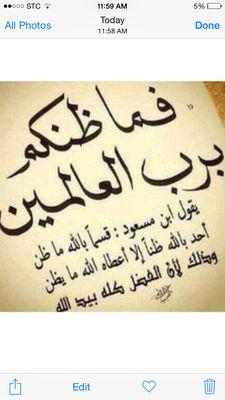 ●●○○○ STC 11:59 AM 5%
All Photos Today Done
11:58 AM
فما ظنكم
برب العالمين
يقول ابن مسعود : قسماً بالله ما ظن
أحد بالله ظناً إلا أعطاه الله ما يظن
وذلك لأن الفضل كله بيد الله
Edit